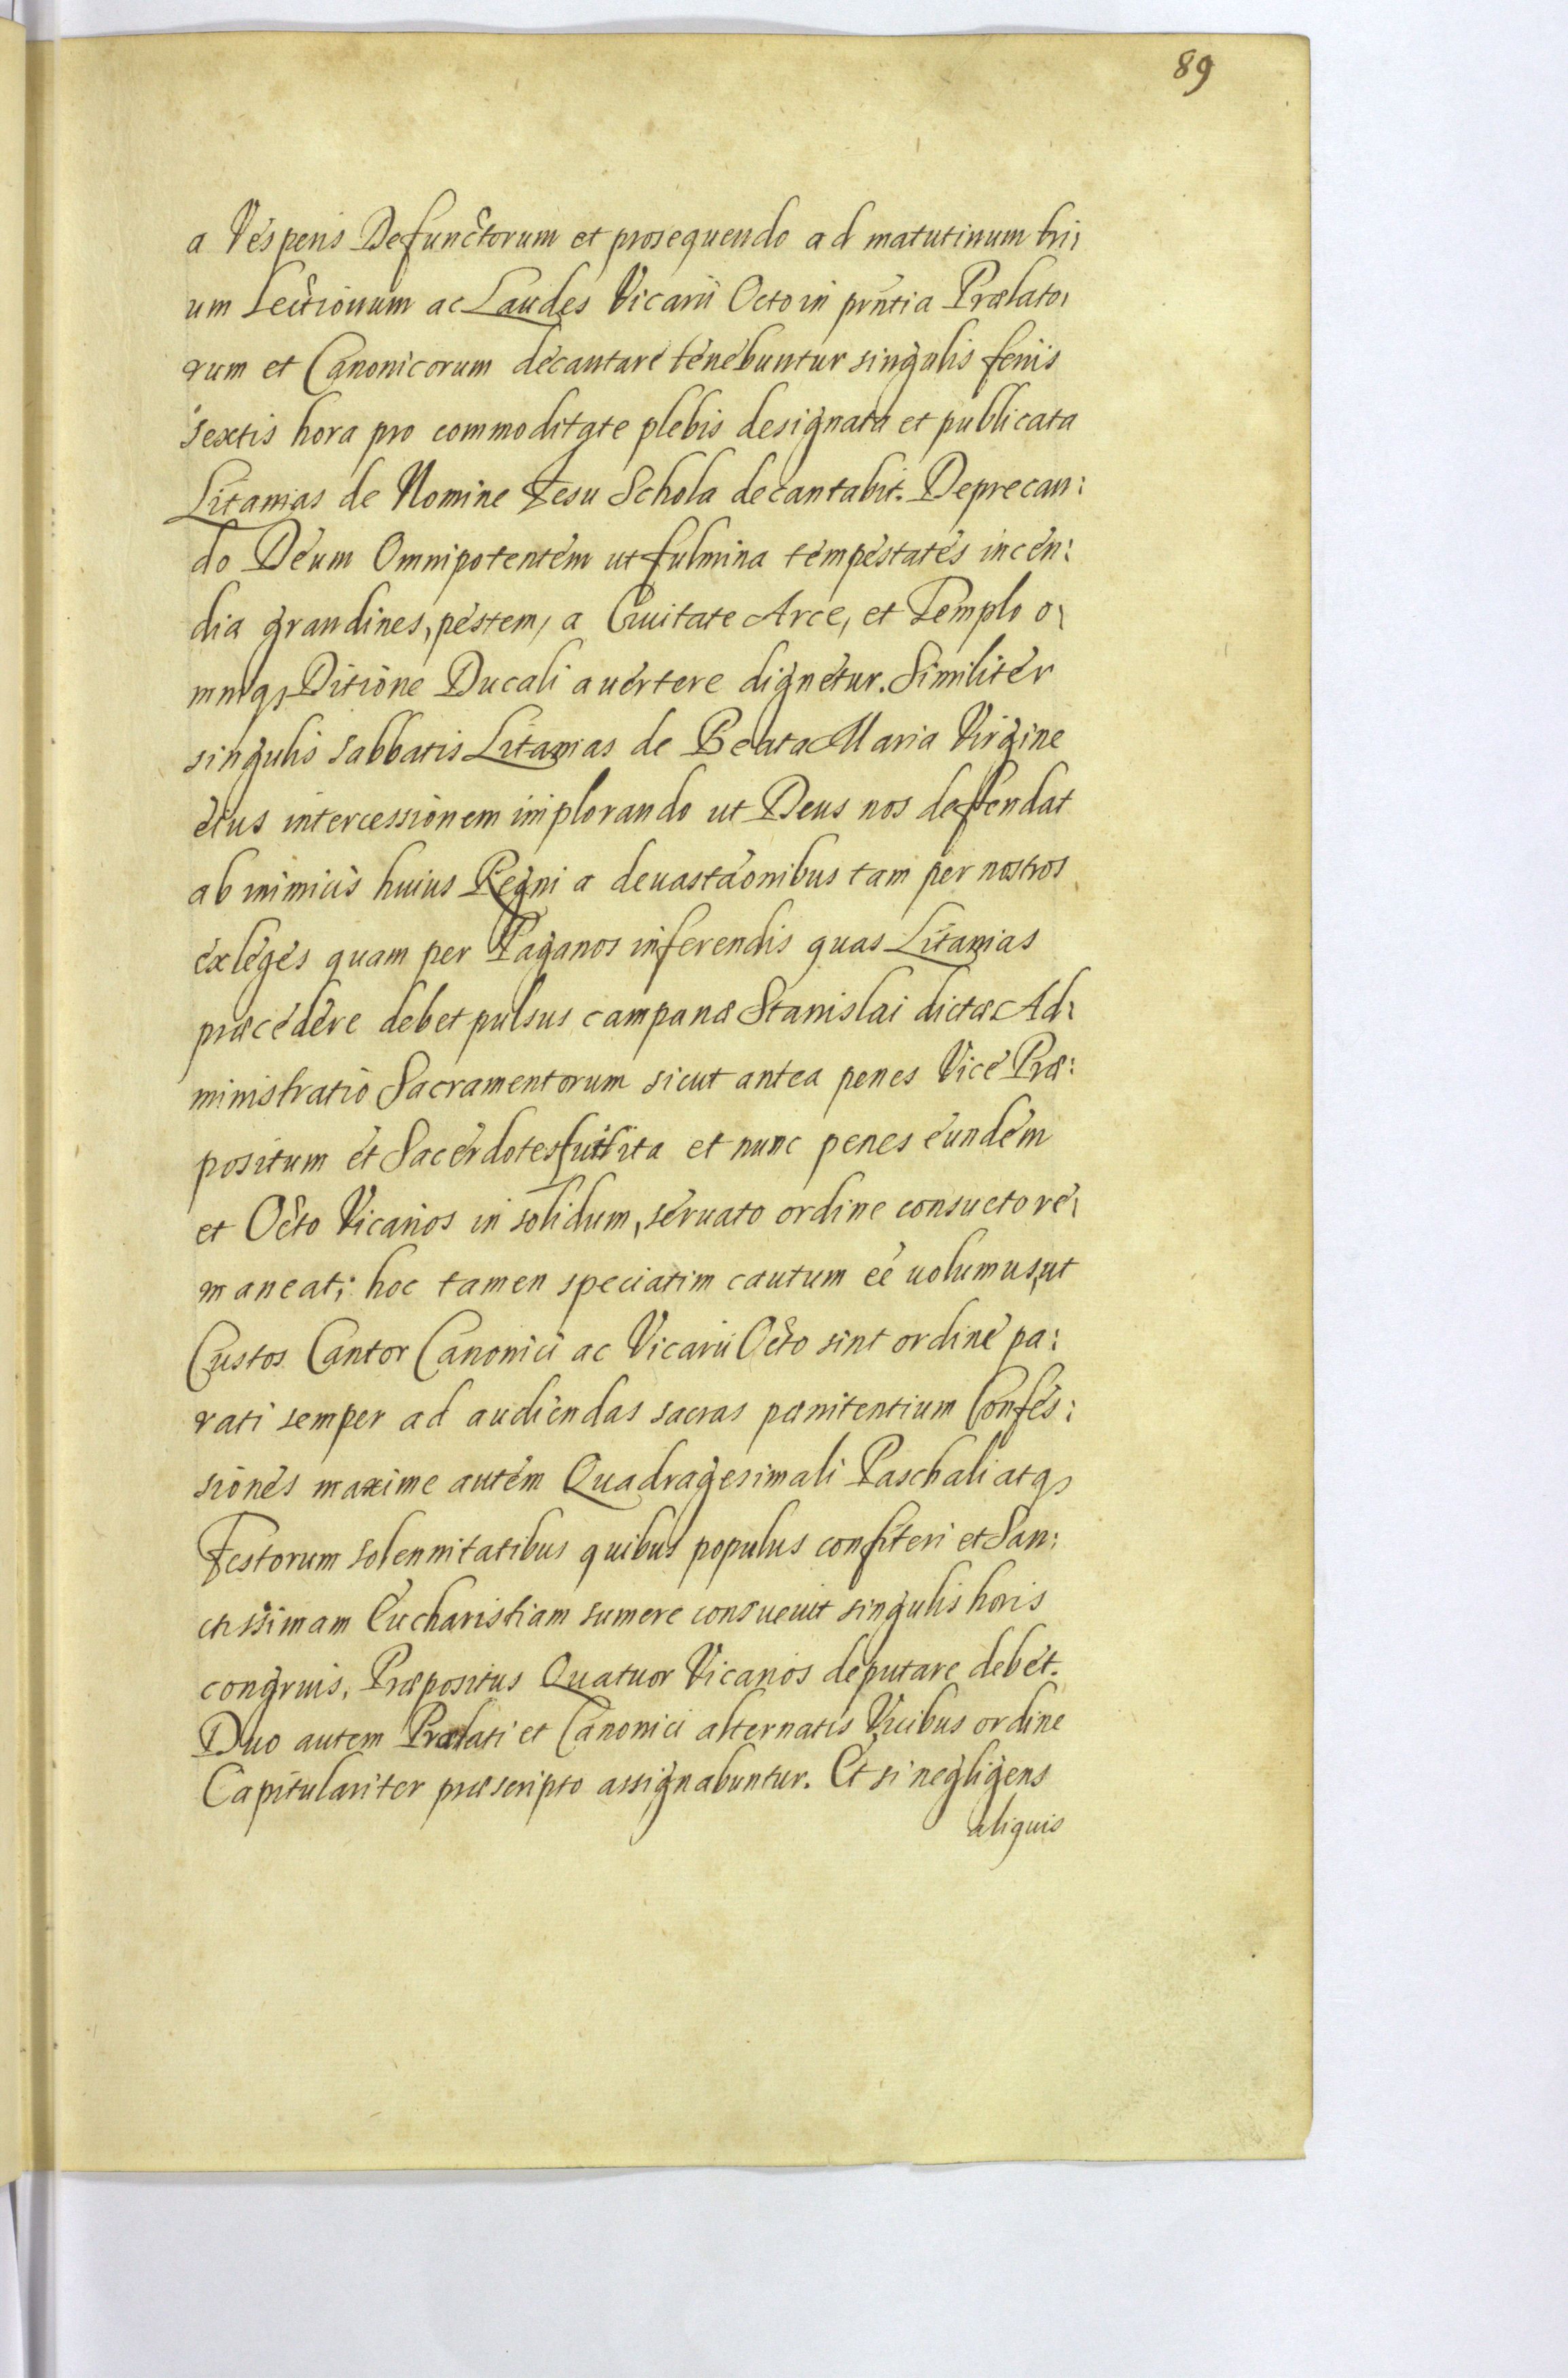 89
a Vesperis Defunctorum et prosequendo ad matutinum tri:
um Lectionum ac Laudes Vicarii Octo in pr̃ntia Prælato:
rum et Canonicorum decantare tenebuntur singulis feriis
sextis hora pro commoditate plebis designata et publicata
Litanias de Nomine Iesu Schola decantabit. Deprecan:
do Deum Omnipotentem ut fulmina tempestates incen:
dia grandines, pestem, a Ciuitate Arce, et Templo o:
mniq₃ Ditione Ducali auertere dignetur. Similiter
singulis sabbatis Litanias de Beata Maria Virgine
eius intercessionem implorando ut Deus nos deffendat
ab inimicis huius Regni a deuastãonibus tam per nostros
exleges quam per Paganos inferendis quas Litanias
præcedere debet pulsus campanæ Stanislai dictæ Ad:
ministratio Sacramentorum sicut antea penes Vice Præ:
positum et Sacerdotes fuit ita et nunc penes eundem
et Octo Vicarios in solidum, seruato ordine consueto re:
maneat; hoc tamen speciatim cautum eẽ uolumus, ut
Custos Cantor Canonici ac Vicarii Octo sint ordine pa:
rati semper ad audiendas sacras pænitentium Confes:
siones maxime autem Quadragesimali Paschali atq₃
Festorum solennitatibus quibus populus confiteri et San:
ctissimam Eucharistiam sumere consueuit singulis horis
congruis, Præpositus Quatuor Vicarios deputare debet.
Duo autem Prælati et Canonici alternatis Vicibus ordine
Capitulariter præscripto assignabuntur. Et si negligens
aliquis